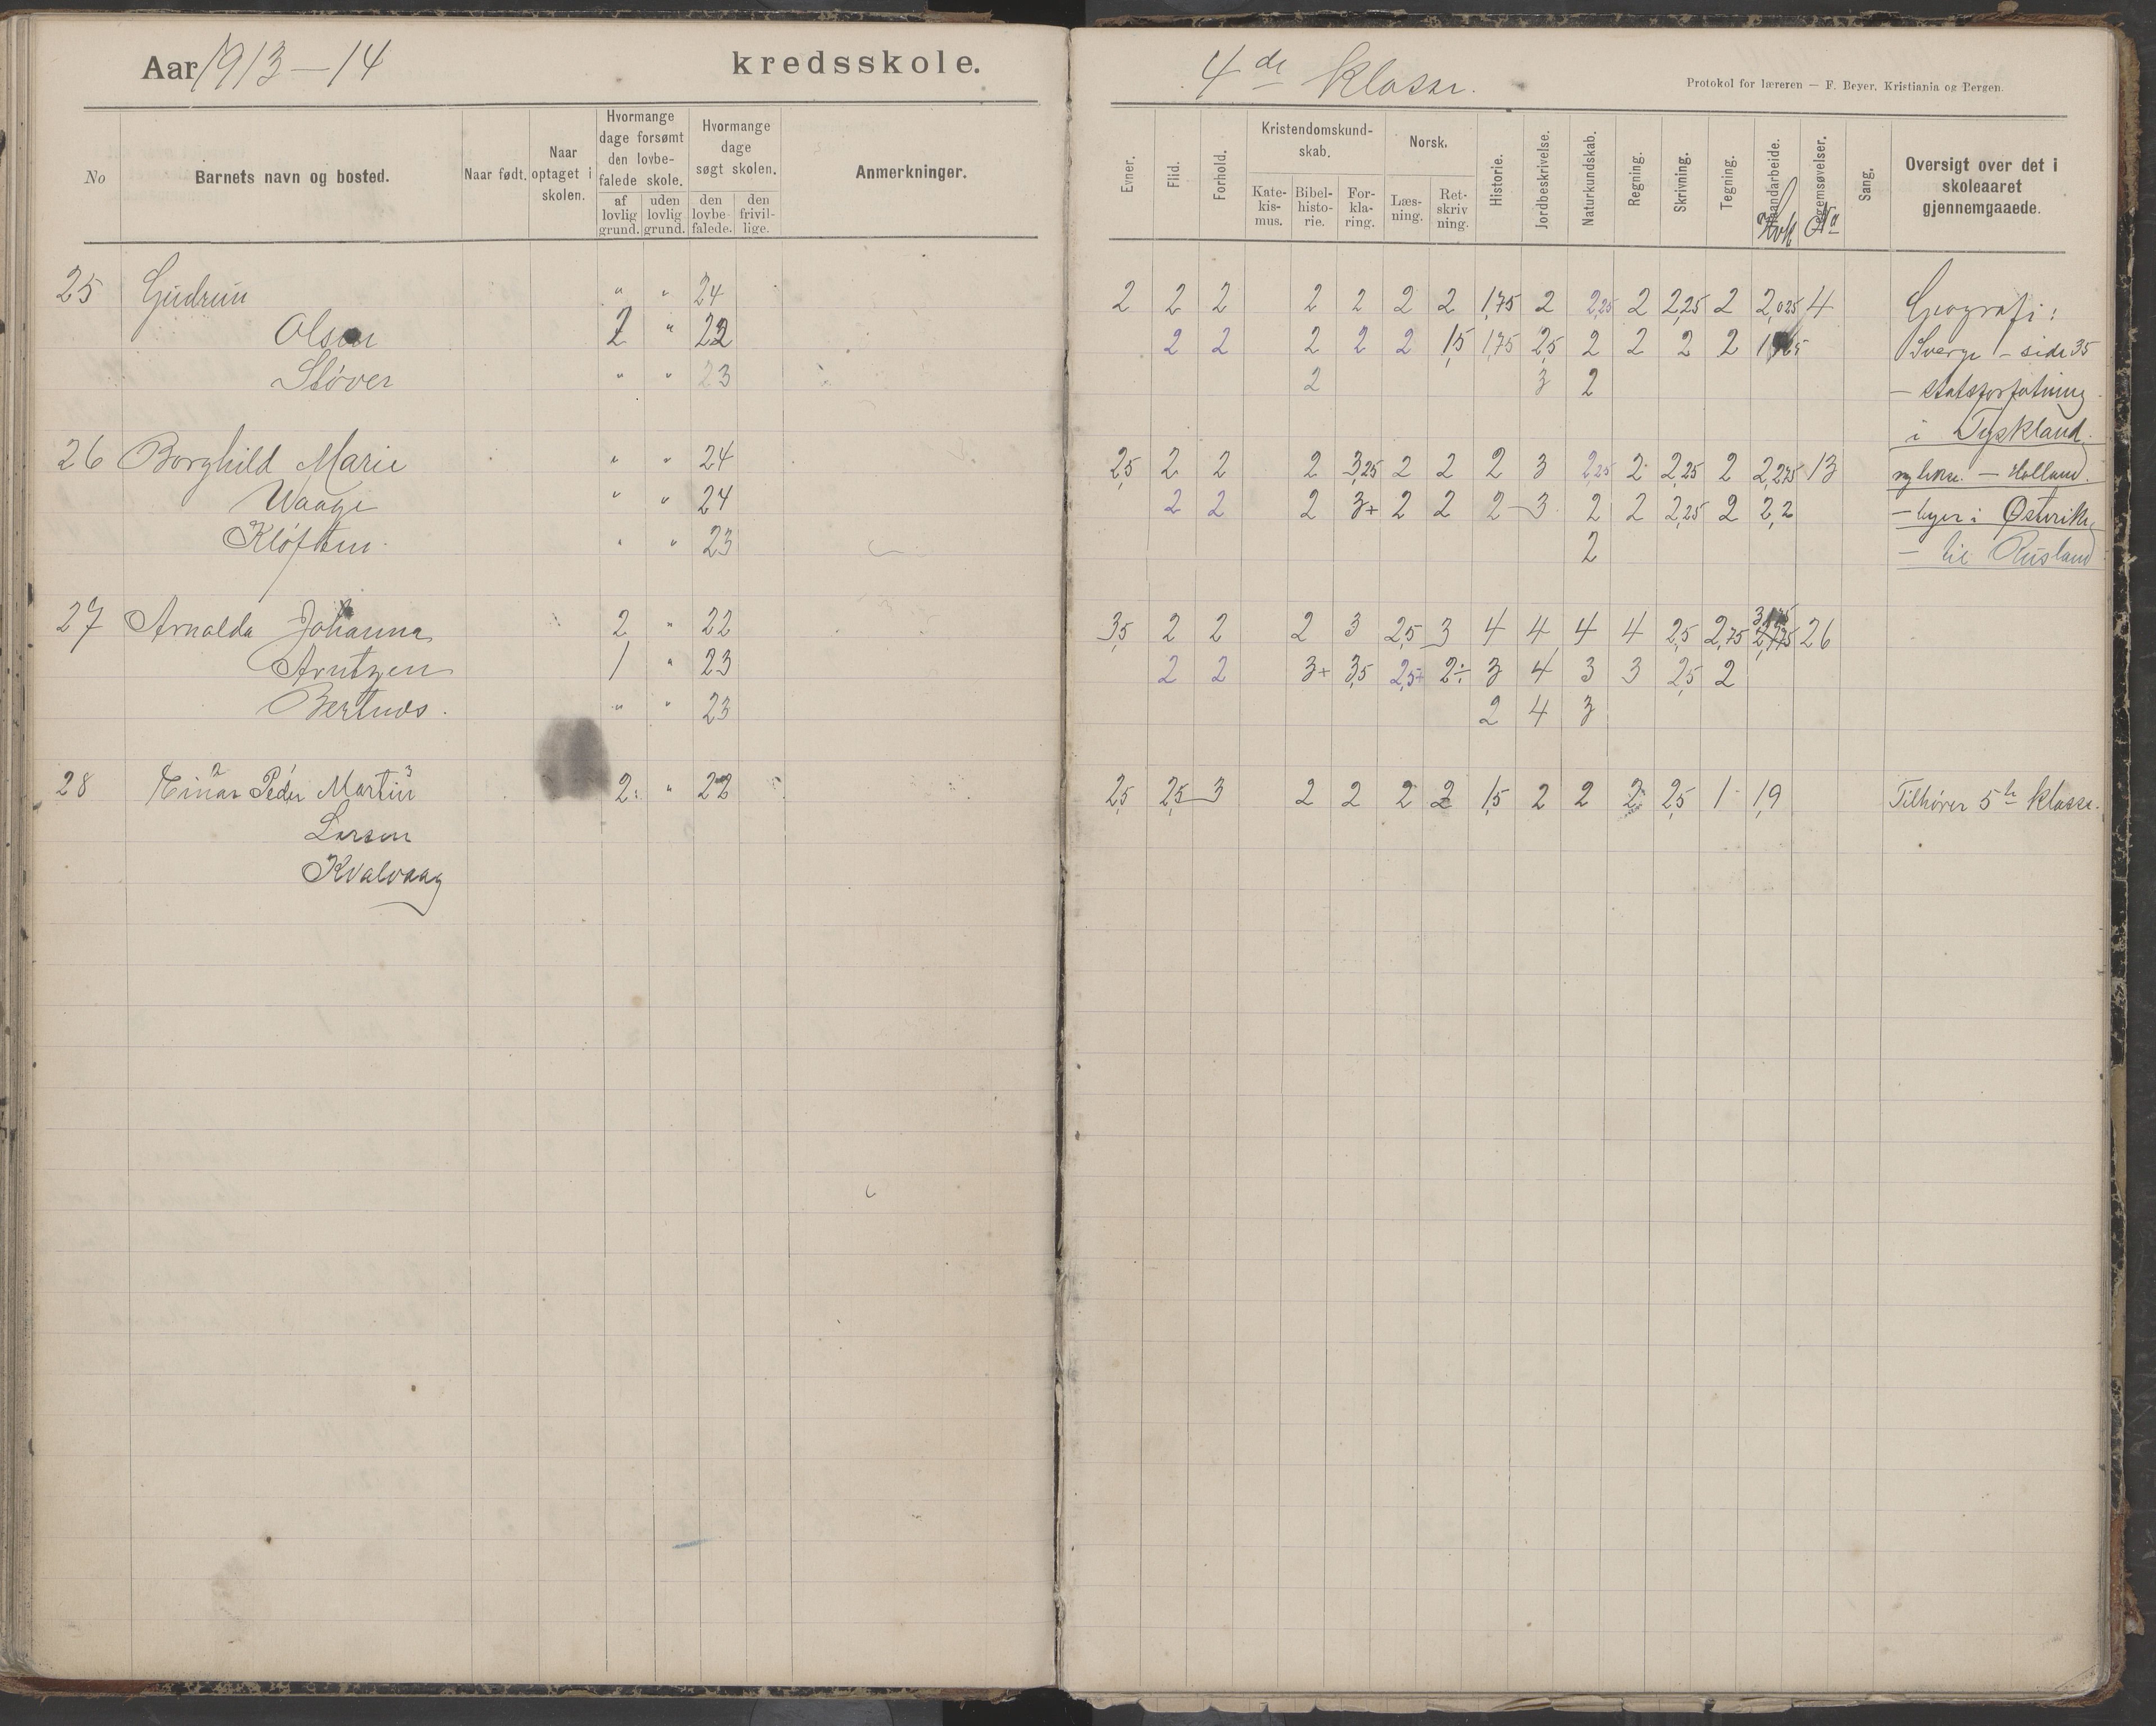 Aar 1913–14 kredsskole.
No
Barnets navn og bosted.
Naar født.
Naar optaget i skolen.
Hvormange dage forsømt den lovbefalede skole.
af lovlig grund.
uden lovlig grund.
Hvormange dage søgt skolen.
den lovbefalede.
den frivillige.
Anmerkninger.
25 Gudrun " " 24
Olsen 2 " 22
Støver " " 23
26 Borghild Marie " " 24
Waage " " 24
Kløften " " 23
27 Arnolda Johanna 2 " 22
Arntzen 1 " 23
Bertnes. " " 23
28 Einar Peder Martin 2 " 22
Larsen
Kvalvaag
4de klasse.
Protokol for læreren — F. Beyer, Kristiania og Bergen.
Evner.
Flid.
Forhold.
Kristendomskundskab.
Katekismus.
Bibelhistorie.
Forklaring.
Norsk.
Læsning.
Retskrivning.
Historie.
Jordbeskrivelse.
Naturkundskab.
Regning.
Skrivning.
Tegning.
Haandarbeide.
Legemsøvelser.
Hvk No
Sang.
Oversigt over det i skoleaaret gjennemgaaede.
2 2 2 2 2 2 2 1,75 2 2,25 2 2,25 2 2,025 4 Geografi:
2 2 2 2 2 1,5 1,75 2,5 2 2 2 2 Sverge – side 35
2 3 2 – statsforfatning
i Tyskland.
2,5 2 2 2 3,25 2 2 2 3 2,25 2 2,25 2 2,275 13 ny lekse. – Holland.
2 2 2 3+ 2 2 2 3 2 2 2,25 2 2,2 – byer i Østerike
2 – til Rusland
3,5 2 2 2 3 2,5 3 4 4 4 4 2,5 2,75 3,175 26
2 2 3+ 3,5 2,5+ 2÷ 3 4 3 3 2,5 2
2 4 3
2,5 2,5 3 2 2 2 2 1,5 2 2 2 2,5 1 1,9 Tilhører 5te klasse.